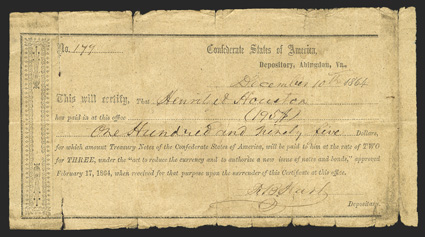 No. 177 Confederate States of America,
Depositary, Abingdon, Va.,
December 10th 1864
This will certify, That Houston
has paid in at this office (195 $)
One Hundred and Ninety five Dollars,
for which amount Treasury Notes of the Confederate States of America, will be paid to him at the rate of TWO
for THREE, under the "act to reduce the currency and to authorize a new issue of notes and bonds," approved
February 17, 1864, when received for that purpose upon the surrender of this Certificate at this office.
Depositary.